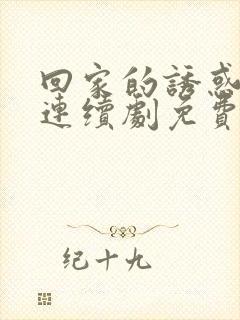 回家的誘惑
連續劇免費
纪十九